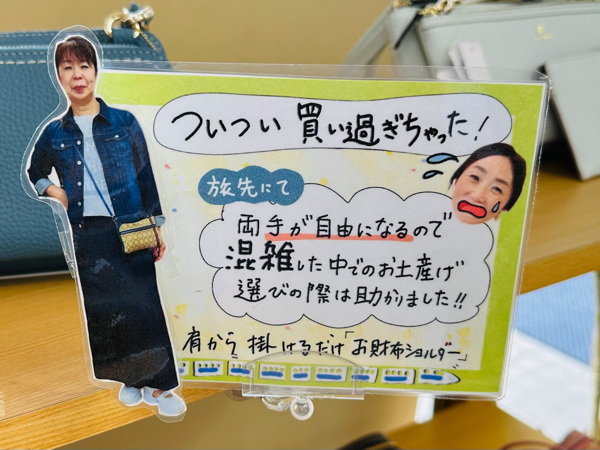 ついつい 買い過ぎちゃった!
旅先にて
両手が自由になるので
混雑した中でのお土産げ
選びの際は助かりました!!
肩から 掛けるだけ「お財布ショルダー」